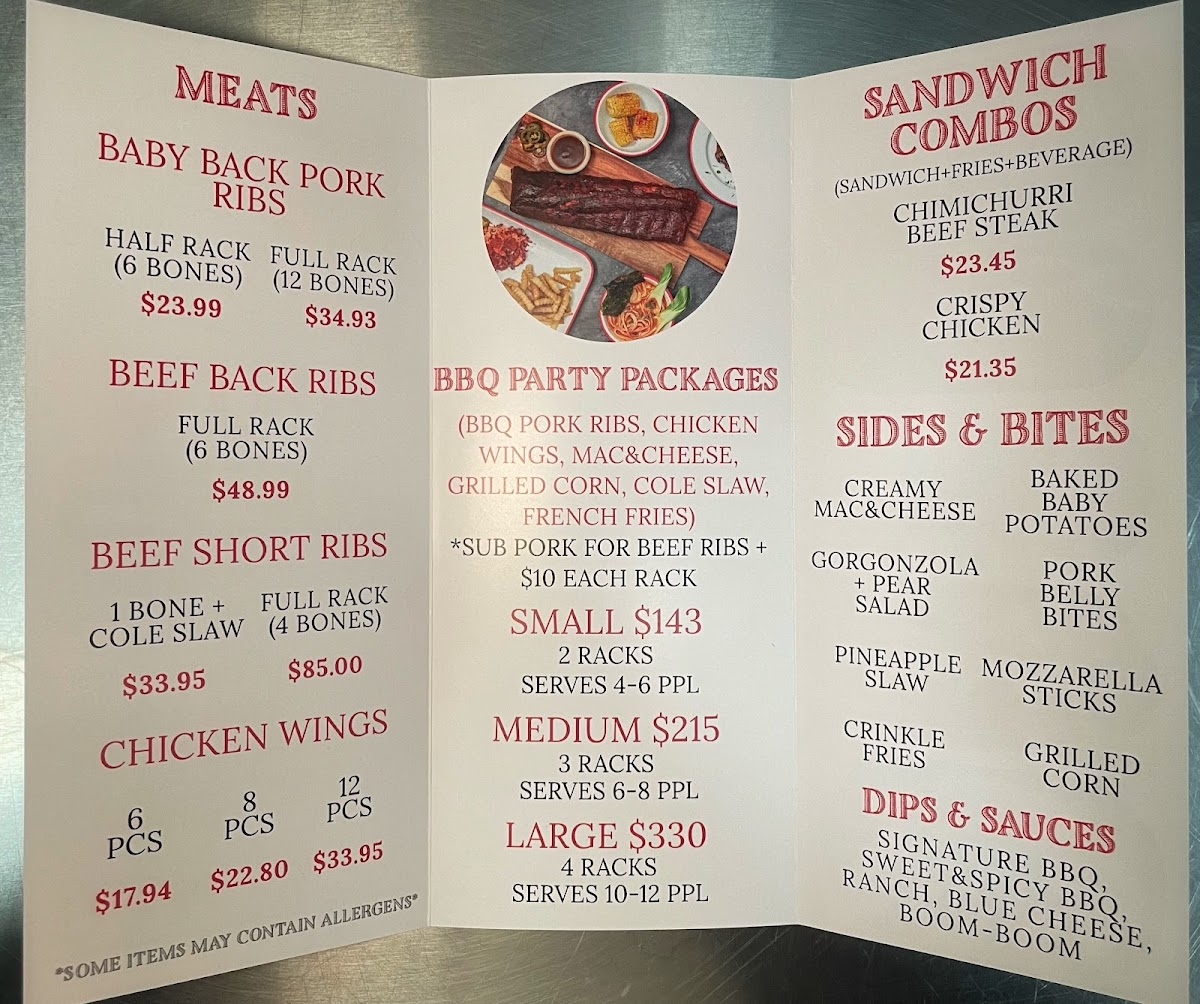 MEATS
BABY BACK PORK
RIBS
HALF RACK
(6 BONES)
$23.99
FULL RACK
(12 BONES)
$34.93
BEEF BACK RIBS
FULL RACK
(6 BONES)
$48.99
BEEF SHORT RIBS
1 BONE +
COLE SLAW
$33.95
FULL RACK
(4 BONES)
$85.00
CHICKEN WINGS
6
PCS
$17.94
8
PCS
$22.80
12
PCS
$33.95
*SOME ITEMS MAY CONTAIN ALLERGENS*
BBQ PARTY PACKAGES
(BBQ PORK RIBS, CHICKEN
WINGS, MAC&CHEESE,
GRILLED CORN, COLE SLAW,
FRENCH FRIES)
*SUB PORK FOR BEEF RIBS +
$10 EACH RACK
SMALL $143
2 RACKS
SERVES 4-6 PPL
MEDIUM $215
3 RACKS
SERVES 6-8 PPL
LARGE $330
4 RACKS
SERVES 10-12 PPL
SANDWICH
COMBOS
(SANDWICH+FRIES+BEVERAGE)
CHIMICHURRI
BEEF STEAK
$23.45
CRISPY
CHICKEN
$21.35
SIDES & BITES
CREAMY
MAC&CHEESE
BAKED
BABY
POTATOES
GORGONZOLA
+ PEAR
SALAD
PORK
BELLY
BITES
PINEAPPLE
SLAW
MOZZARELLA
STICKS
CRINKLE
FRIES
GRILLED
CORN
DIPS & SAUCES
SIGNATURE BBQ,
SWEET&SPICY BBQ,
RANCH, BLUE CHEESE,
BOOM-BOOM